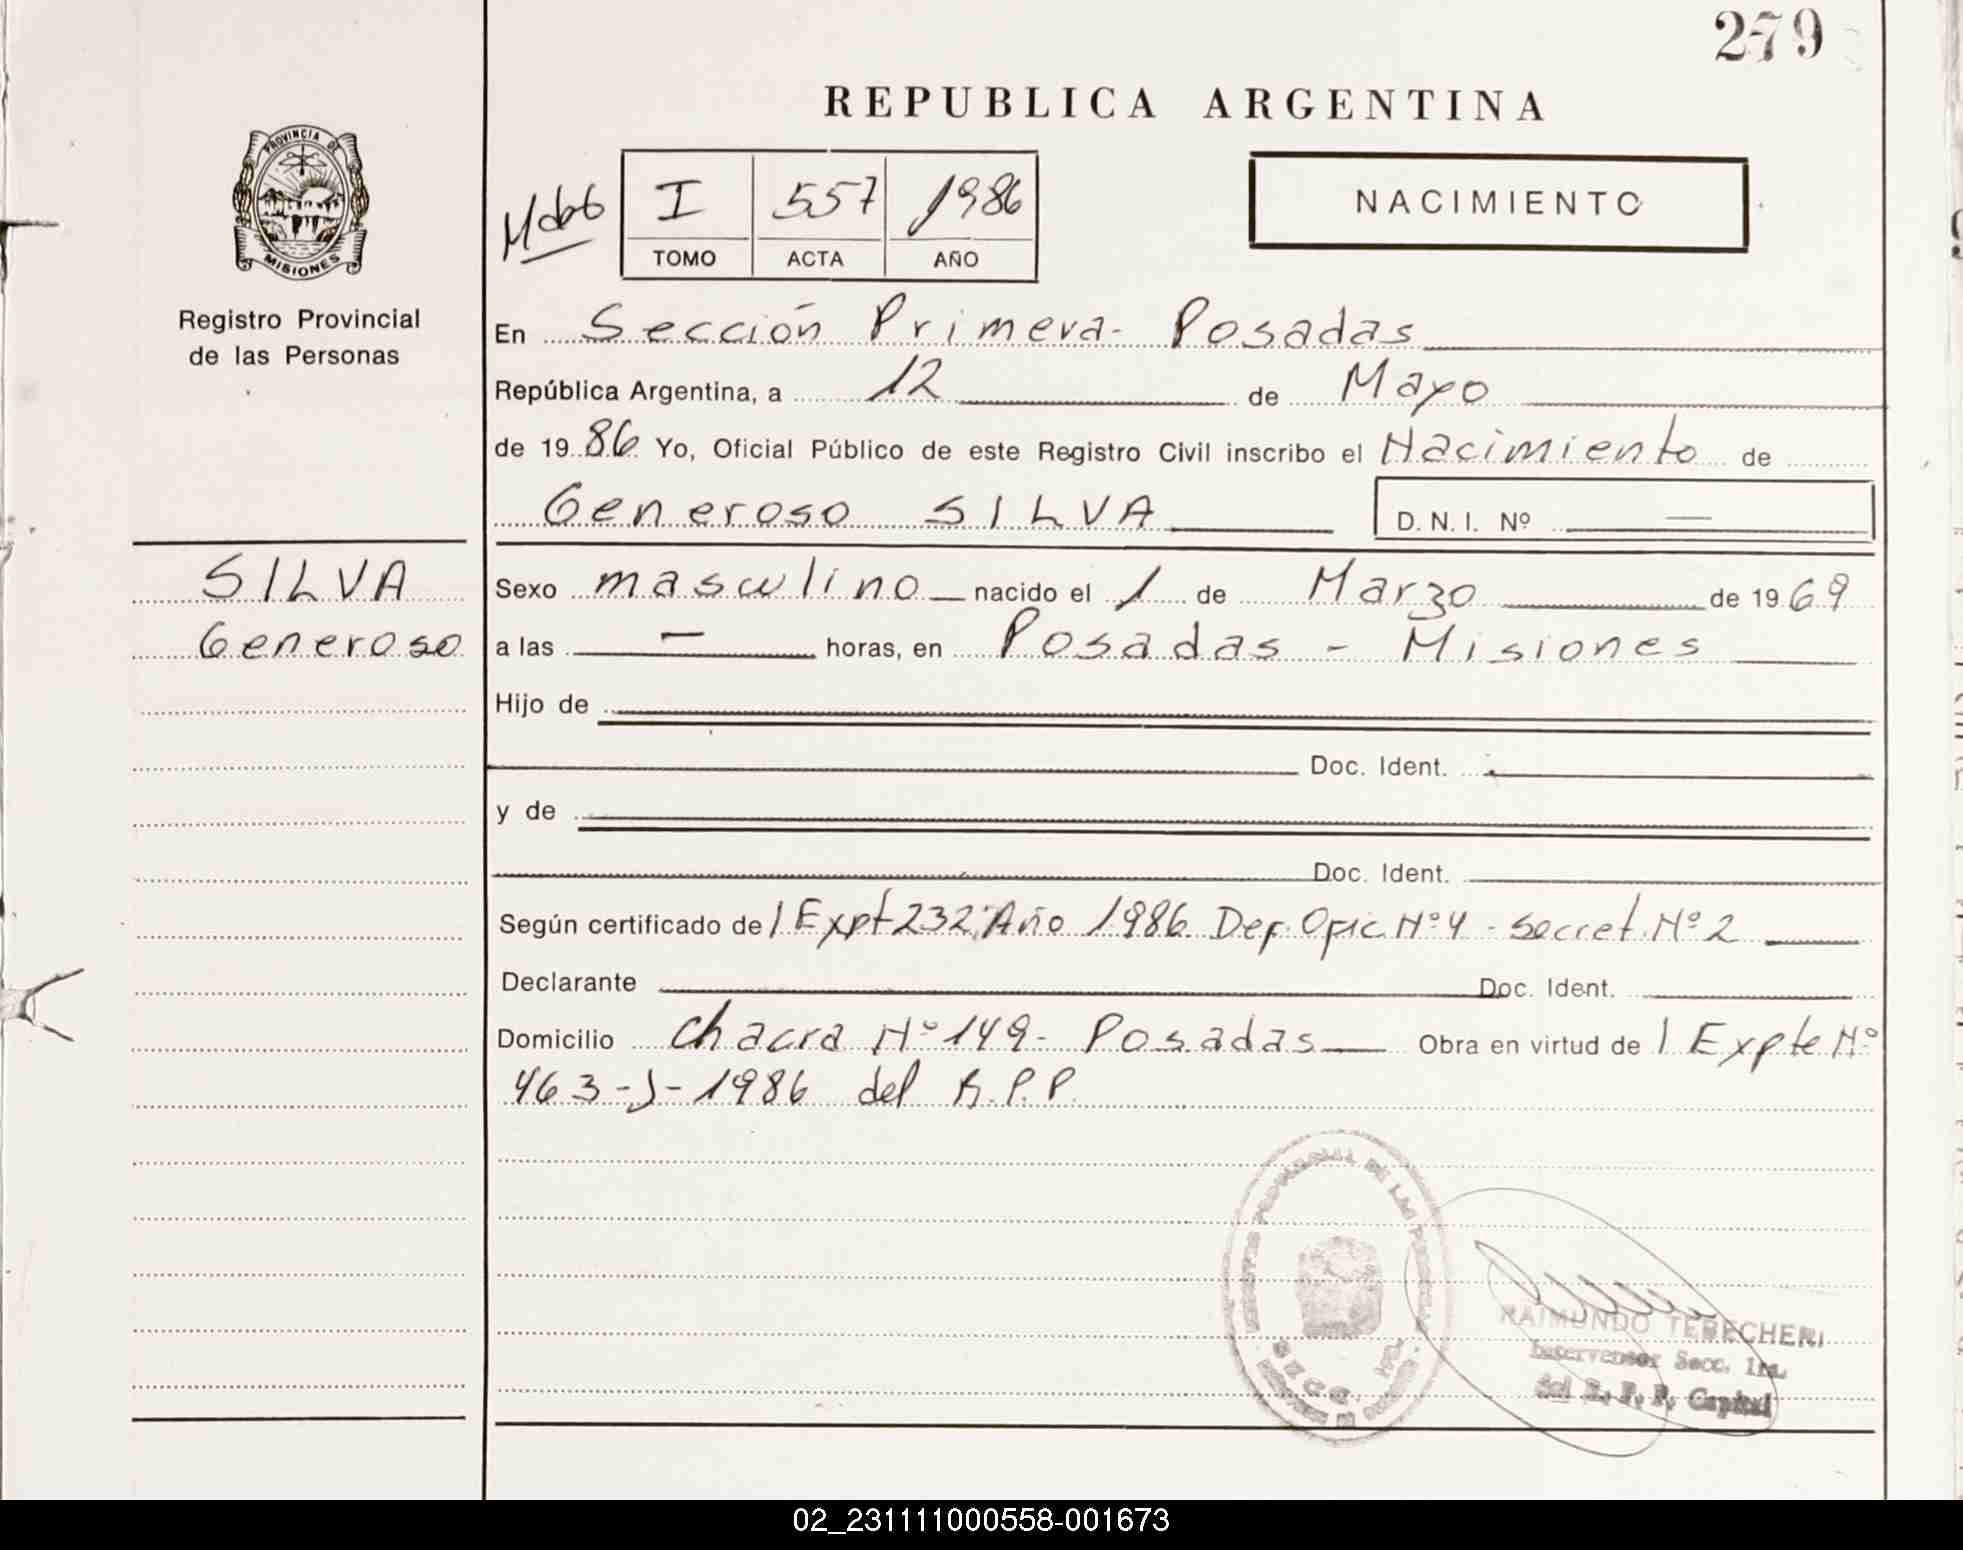 279
REPUBLICA ARGENTINA
PROVINCIA DE
MISIONES
Registro Provincial
de las Personas
I 557 1986
TOMO ACTA AÑO
NACIMIENTO
En Sección Primera - Posadas
República Argentina, a 12 de Mayo
de 19 86 Yo, Oficial Público de este Registro Civil inscribo el Nacimiento de
Generoso SILVA D. N. I. Nº —
SILVA
Generoso
Sexo masculino nacido el 1 de Marzo de 19 69
a las — horas, en Posadas - Misiones
Hijo de
Doc. Ident.
y de
Doc. Ident.
Según certificado de / Expt 232, Año 1986 Def. Ofic. Nº 4 - Secret. Nº 2
Declarante Doc. Ident.
Domicilio Chacra Nº 149 - Posadas Obra en virtud de / Expte Nº
463 - J - 1986 del R.P.P.
PROVINCIAL DE LAS
RAIMUNDO TERECHERI
Interventor Secc. 1ra.
del R. P. P. Capital
02_231111000558-001673